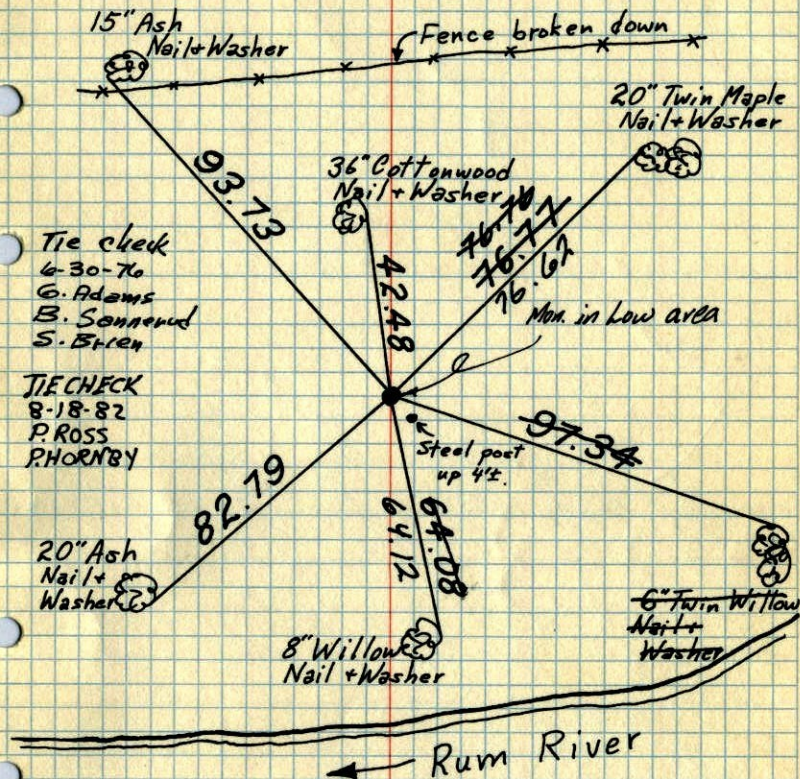 15" Ash
Nail + Washer
Fence broken down
20" Twin Maple
Nail + Washer
36" Cottonwood
Nail + Washer
93.73
42.48
76.76
76.77
76.62
Tie check
6-30-76
G. Adams
B. Sonnerud
S. Brien
Mon. in Low area
TIE CHECK
8-18-82
P. ROSS
P. HORNBY
97.34
Steel post
up 4'±.
82.79
64.12
64.08
20" Ash
Nail +
Washer
6" Twin Willow
Nail +
Washer
8" Willow
Nail + Washer
Rum River